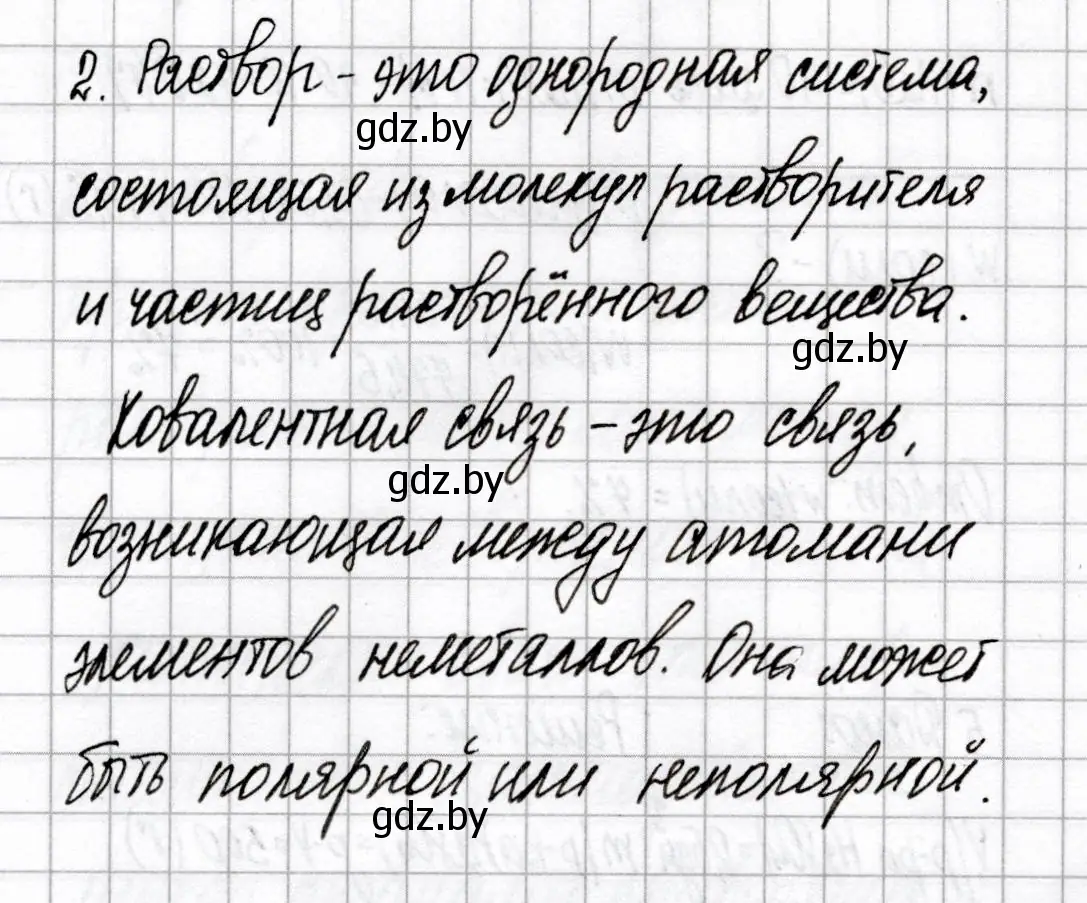 2. Раствор - это однородная система,
gdz.by
состоящая из молекул растворителя
и частиц растворённого вещества.
gdz.by
Ковалентная связь - это связь,
gdz.by
возникающая между атомами
элементов неметаллов. Она может
быть полярной или неполярной.
gdz.by